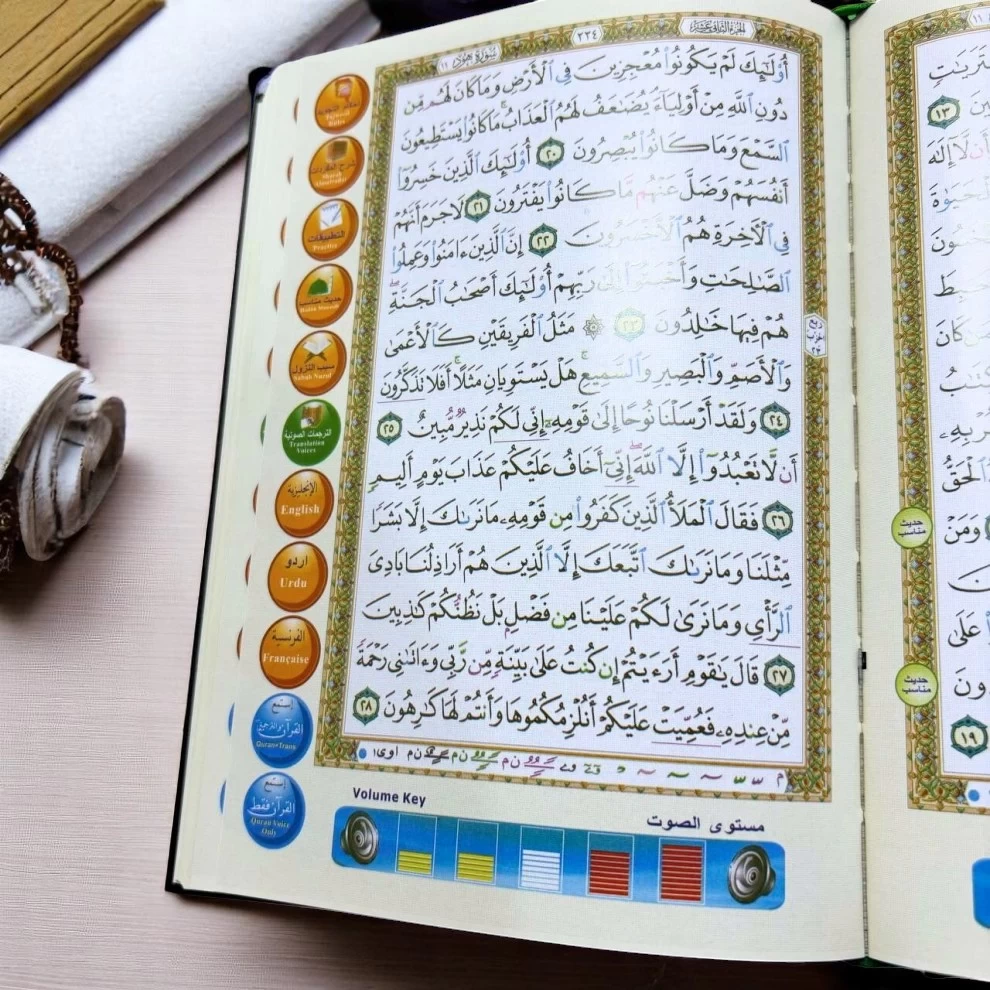 الجزء الثاني عشر
٢٢٤
سورة هود ١١
أُوْلَٰٓئِكَ لَمْ يَكُونُوا۟ مُعْجِزِينَ فِى ٱلْأَرْضِ وَمَا كَانَ لَهُم مِّن
دُونِ ٱللَّهِ مِنْ أَوْلِيَآءَ يُضَٰعَفُ لَهُمُ ٱلْعَذَابُ ۚ مَا كَانُوا۟ يَسْتَطِيعُونَ
ٱلسَّمْعَ وَمَا كَانُوا۟ يُبْصِرُونَ ٢٠ أُوْلَٰٓئِكَ ٱلَّذِينَ خَسِرُوٓا۟
أَنفُسَهُمْ وَضَلَّ عَنْهُم مَّا كَانُوا۟ يَفْتَرُونَ ٢١ لَا جَرَمَ أَنَّهُمْ
فِى ٱلْأَخِرَةِ هُمُ ٱلْأَخْسَرُونَ ٢٢ إِنَّ ٱلَّذِينَ ءَامَنُوا۟ وَعَمِلُوا۟
ٱلصَّٰلِحَٰتِ وَأَخْبَتُوٓا۟ إِلَىٰ رَبِّهِمْ أُوْلَٰٓئِكَ أَصْحَٰبُ ٱلْجَنَّةِ ۖ
هُمْ فِيهَا خَٰلِدُونَ ٢٣ ۞ مَثَلُ ٱلْفَرِيقَيْنِ كَٱلْأَعْمَىٰ
وَٱلْأَصَمِّ وَٱلْبَصِيرِ وَٱلسَّمِيعِ ۚ هَلْ يَسْتَوِيَانِ مَثَلًا ۚ أَفَلَا تَذَكَّرُونَ
٢٤ وَلَقَدْ أَرْسَلْنَا نُوحًا إِلَىٰ قَوْمِهِۦٓ إِنِّى لَكُمْ نَذِيرٌ مُّبِينٌ ٢٥
أَن لَّا تَعْبُدُوٓا۟ إِلَّا ٱللَّهَ ۖ إِنِّىٓ أَخَافُ عَلَيْكُمْ عَذَابَ يَوْمٍ أَلِيمٍ
٢٦ فَقَالَ ٱلْمَلَأُ ٱلَّذِينَ كَفَرُوا۟ مِن قَوْمِهِۦ مَا نَرَىٰكَ إِلَّا بَشَرًا
مِّثْلَنَا وَمَا نَرَىٰكَ ٱتَّبَعَكَ إِلَّا ٱلَّذِينَ هُمْ أَرَاذِلُنَا بَادِىَ
ٱلرَّأْىِ وَمَا نَرَىٰ لَكُمْ عَلَيْنَا مِن فَضْلٍۭ بَلْ نَظُنُّكُمْ كَٰذِبِينَ
٢٧ قَالَ يَٰقَوْمِ أَرَءَيْتُمْ إِن كُنتُ عَلَىٰ بَيِّنَةٍ مِّن رَّبِّى وَءَاتَىٰنِى رَحْمَةً
مِّنْ عِندِهِۦ فَعُمِّيَتْ عَلَيْكُمْ أَنُلْزِمُكُمُوهَا وَأَنتُمْ لَهَا كَٰرِهُونَ ٢٨
ربع
الحزب
أحكام التجويد
Tajweed
Rules
شرح المفردات
التطبيقات
Practice
حديث مناسب
سبب النزول
Sabab Nuzul
الترجمات الصوتية
Translation
Voices
الإنجليزية
English
اردو
Urdu
الفرنسية
Française
إستمع
القرآن والترجمة
Quran+Trans
إستمع
القرآن فقط
Quran Voice
Only
Volume Key
مستوى الصوت
١٣
حديث
مناسب
وَمَنْ
حديث
مناسب
١٩